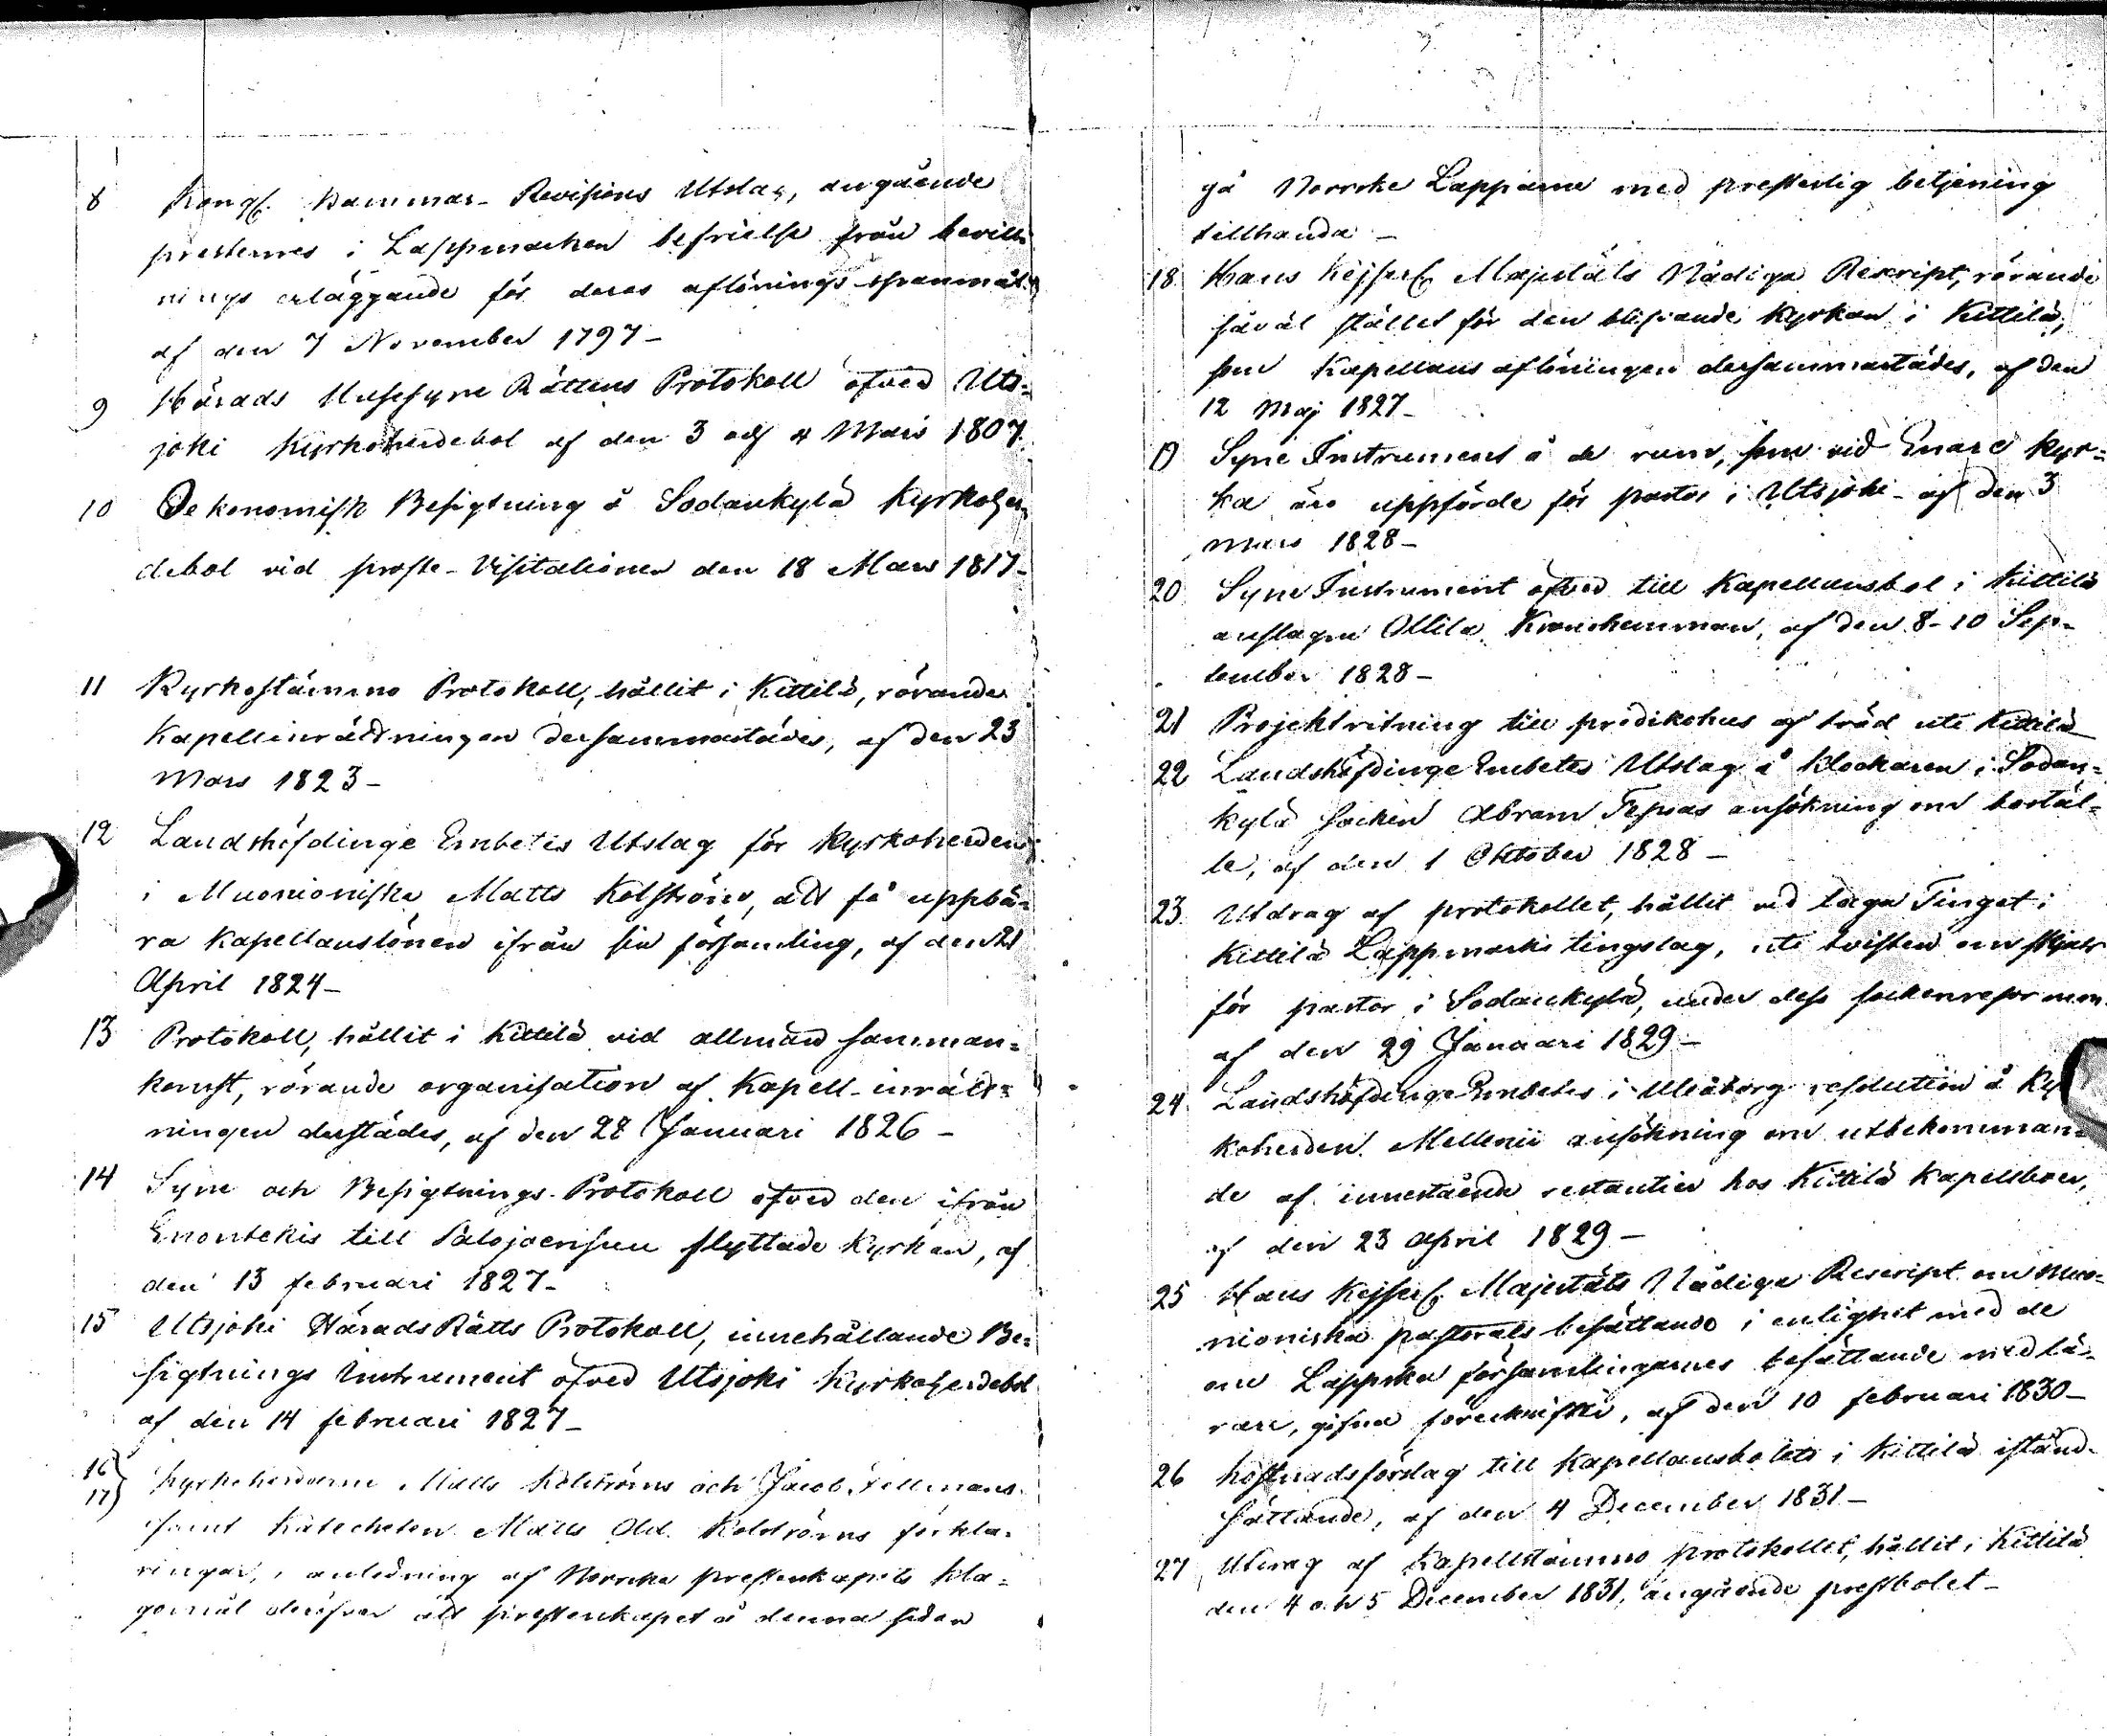 8 Kongl. Kammar-Revisions Utslag, angående
presternes i Lappmarken befrielse från bevill-
nings erläggande för deras aflönings spanmål,
af den 7 November 1797 -
9 Härads Husesyne Rättens Protokoll öfver Uts-
joki Kyrkoherdebol af den 3 och 4 Mars 1807.
10 Oekonomisk Besigtning å Sodankylä Kyrkoher-
debol vid proste-Visitationen den 18 Mars 1817-
11 Kyrkostämmo Protokoll, hållit i Kittilä, rörande
Kapellinrättningen dersammastädes, af den 23
Mars 1823 -
12 Landshöfdinge Embetes Utslag för Kyrkoherden
i Muonioniska Matts Kolström, att få uppbä-
ra Kapellanslönen ifrån sin församling, af den 21
April 1824 -
13 Protokoll, hållit i Kittilä vid allmän samman-
komst, rörande organisation af Kapell-inrätt-
ningen derstädes, af den 28 Januari 1826 -
14 Syne och Besigtnings-Protokoll öfver den ifrån
Enontekis till Palojoensuu flyttade Kyrkan, af
den 13 februari 1827-
15 Utsjoki HäradsRätts Protokoll, innehållande Be-
sigtnings Instrument öfver Utsjoki Kyrkoherdebol
af den 14 februari 1827 -
16 17} Kyrkoherdarne Matts Kolströms och Jacob Fellmans
samt Katecheten Matts Ad. Kolströms förkla-
ringar, i anledning af Norrska presterskapets kla-
gomål deröfver att presterskapet å denna sidan
gå Norrske Lapparne med presterlig betjening
tillhanda -
18 Hans Kejserl. Majestäts Nådiga Rescript, rörande
såväl stället för den blifvande Kyrkan i Kittilä,
som Kapellans aflöningen dersammastädes, af den
12 Maj 1827 -
19 Syne Instrument å de rum, som vid Enare Kyr-
ka äro uppförde för pastor i Utsjoki - af den 3
Mars 1828 -
20 Syne Instrument öfver till Kapellansbol i Kittilä
anslagne Ollila Kronohemman, af den 8-10 Sep-
tember 1828 -
21 Projektritning till predikohus af träd uti Kittilä
22 Landshöfdinge Embetes Utslag å Klockaren i Sodan-
kylä socken Abram ansökning om boställ-
le, af den 1 Oktober 1828 -
23 Utdrag af protokollet, hållit vid laga Tinget i
Kittilä Lappmarks tingslag, uti tvisten om skjuts
för pastor i Sodankylä, under dess sockenresor
af den 29 Januari 1829 -
24 Landshöfdinge-Embetes i Uleåborg resolution å Kyr
koherden Mellenii ansökning om utbekomman-
de af innestående restantier hos Kittilä Kapellboer,
af den 23 April 1829 -
25 Hans Kejserl. Majestäts Nådiga Rescript om Muo-
nioniska pastorats besättande i enlighet med de
om Lappska församlingarnes besättande med lä-
rare, gifna föreskrifter, af den 10 februari 1830 -
26 Kostnadsförslag till Kapellansbolets i Kittilä iständ-
sättande, af den 4 December 1831 -
27 Utdrag af Kapellstämmo protokollet, hållit i Kittilä
den 4 och 5 December 1831, angående prestbolet -